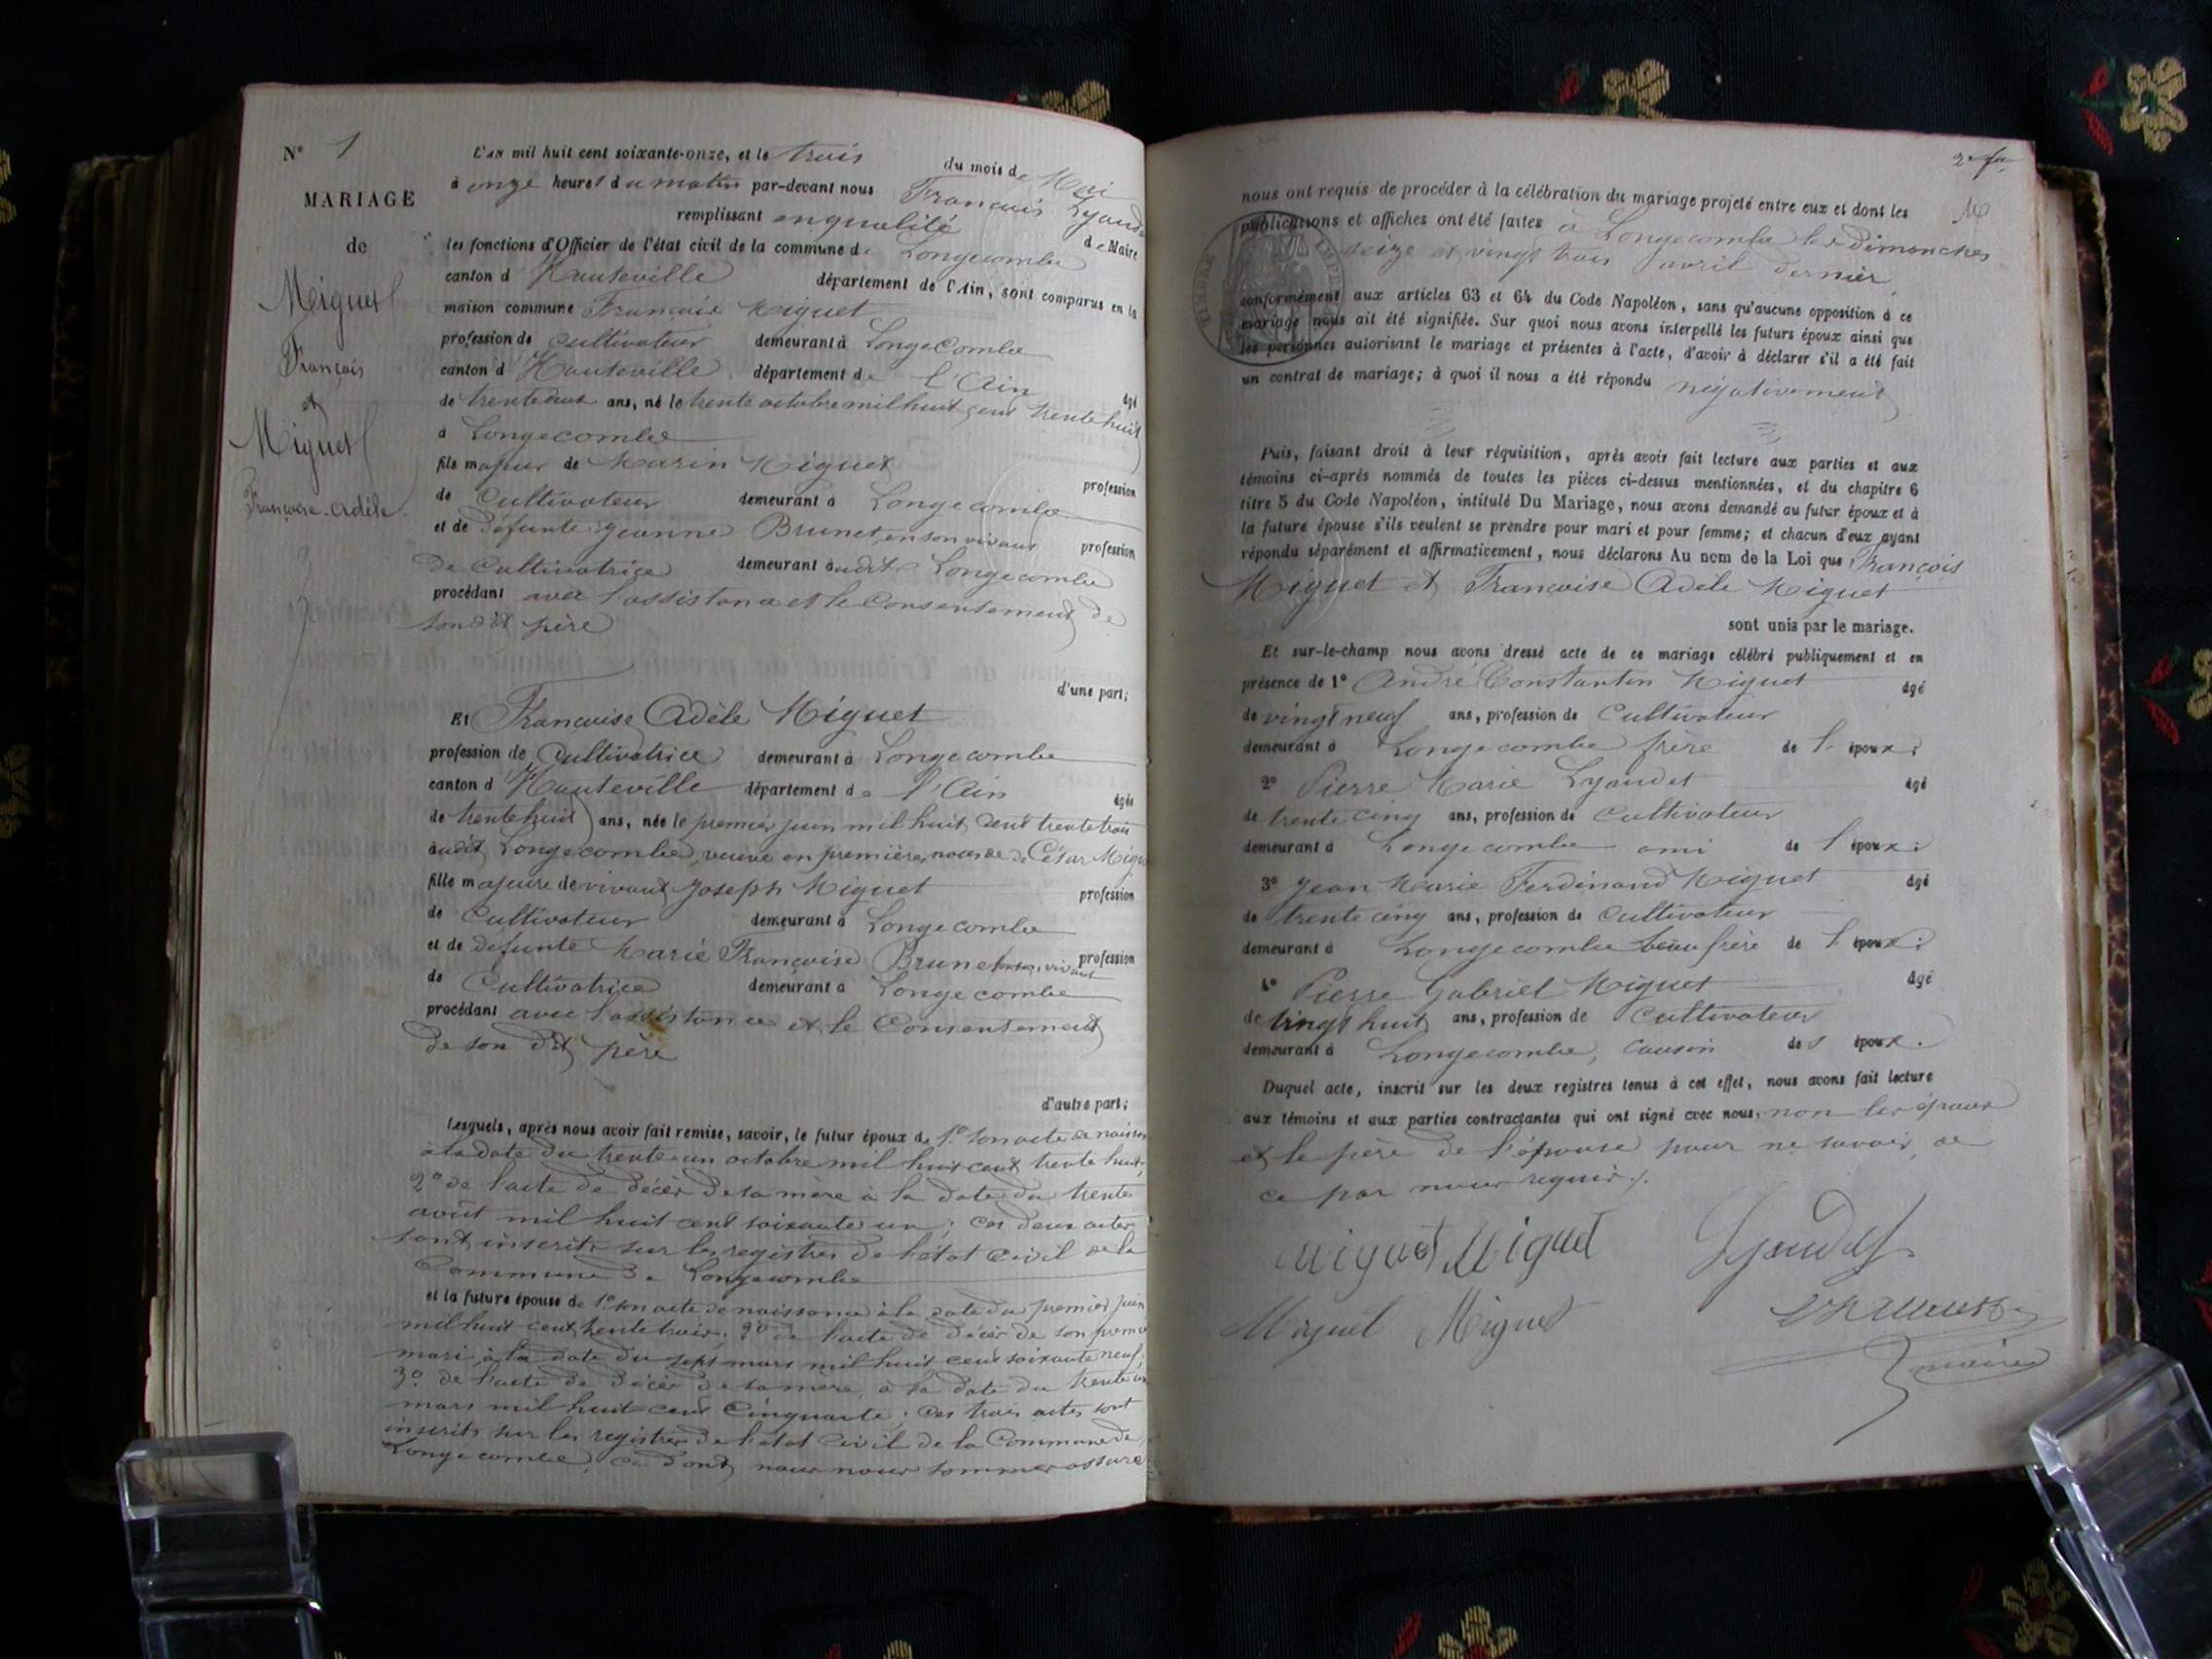 N° 1
MARIAGE
de
Miguet
François
et
Miguet
Françoise-Adèle
L'AN mil huit cent soixante-onze, et le trois du mois de Mai
à onze heures du matin par-devant nous François Lyaudet
remplissant en qualité de Maire
les fonctions d'Officier de l'état civil de la commune de Longecombe
canton d'Hauteville département de l'Ain, sont comparus en la
maison commune François Miguet
profession de Cultivateur demeurant à Longecombe
canton d'Hauteville département de l'Ain âgé
de trente deux ans, né le trente octobre mil huit cent trente huit
à Longecombe
fils majeur de Marin Miguet profession
de Cultivateur demeurant à Longecombe
et de défunte Jeanne Brunet, en son vivant profession
de Cultivatrice demeurant audit Longecombe
procédant avec l'assistance et le Consentement de
son dit père
d'une part;
Et Françoise Adèle Miguet
profession de Cultivatrice demeurant à Longecombe
canton d'Hauteville département de l'Ain âgée
de trente huit ans, née le premier juin mil huit cent trente trois
audit Longecombe, veuve en premières noces de César Migu
fille majeure de vivant Joseph Miguet profession
de Cultivateur demeurant à Longecombe
et de défunte Marie Françoise Brunet en son vivant profession
de Cultivatrice demeurant à Longecombe
procédant avec l'assistance et le Consentement
de son dit père
d'autre part;
Lesquels, après nous avoir fait remise, savoir, le futur époux de 1° son acte de naissan
à la date du trente un octobre mil huit cent trente huit,
2° de l'acte de décès de sa mère à la date du trente
août mil huit cent soixante un; ces deux actes
sont inscrits sur les registres de l'état civil de la
Commune de Longecombe
et la future épouse de 1° son acte de naissance à la date du premier juin
mil huit cent trente trois; 2° de l'acte de décès de son premier
mari, à la date du sept mars mil huit cent soixante neuf;
3° de l'acte de décès de sa mère, à la date du trente un
mars mil huit cent cinquante; ces trois actes sont
inscrits sur les registres de l'état civil de la Commune de
Longecombe, ce dont nous nous sommes assuré
nous ont requis de procéder à la célébration du mariage projeté entre eux et dont les
publications et affiches ont été faites à Longecombe les dimanches
seize et vingt trois avril dernier,
conformément aux articles 63 et 64 du Code Napoléon, sans qu'aucune opposition à ce
mariage nous ait été signifiée. Sur quoi nous avons interpellé les futurs époux ainsi que
les personnes autorisant le mariage et présentes à l'acte, d'avoir à déclarer s'il a été fait
un contrat de mariage; à quoi il nous a été répondu négativement
Puis, faisant droit à leur réquisition, après avoir fait lecture aux parties et aux
témoins ci-après nommés de toutes les pièces ci-dessus mentionnées, et du chapitre 6
titre 5 du Code Napoléon, intitulé Du Mariage, nous avons demandé au futur époux et à
la future épouse s'ils veulent se prendre pour mari et pour femme; et chacun d'eux ayant
répondu séparément et affirmativement, nous déclarons Au nom de la Loi que François
Miguet et Françoise Adèle Miguet
sont unis par le mariage.
Et sur-le-champ nous avons dressé acte de ce mariage célébré publiquement et en
présence de 1° André Constantin Miguet âgé
de vingt neuf ans, profession de Cultivateur
demeurant à Longecombe frère de l'époux;
2° Pierre Marie Lyaudet âgé
de trente cinq ans, profession de Cultivateur
demeurant à Longecombe ami de l'époux;
3° Jean Marie Ferdinand Miguet âgé
de trente cinq ans, profession de Cultivateur
demeurant à Longecombe beau frère de l'époux;
4° Pierre Gabriel Miguet âgé
de vingt huit ans, profession de Cultivateur
demeurant à Longecombe, cousin des époux.
Duquel acte, inscrit sur les deux registres tenus à cet effet, nous avons fait lecture
aux témoins et aux parties contractantes qui ont signé avec nous, non les époux
et le père de l'épouse pour ne savoir, de
ce par nous requis./.
Miguet Miguet Lyaudet
Miguet Miguet
maire